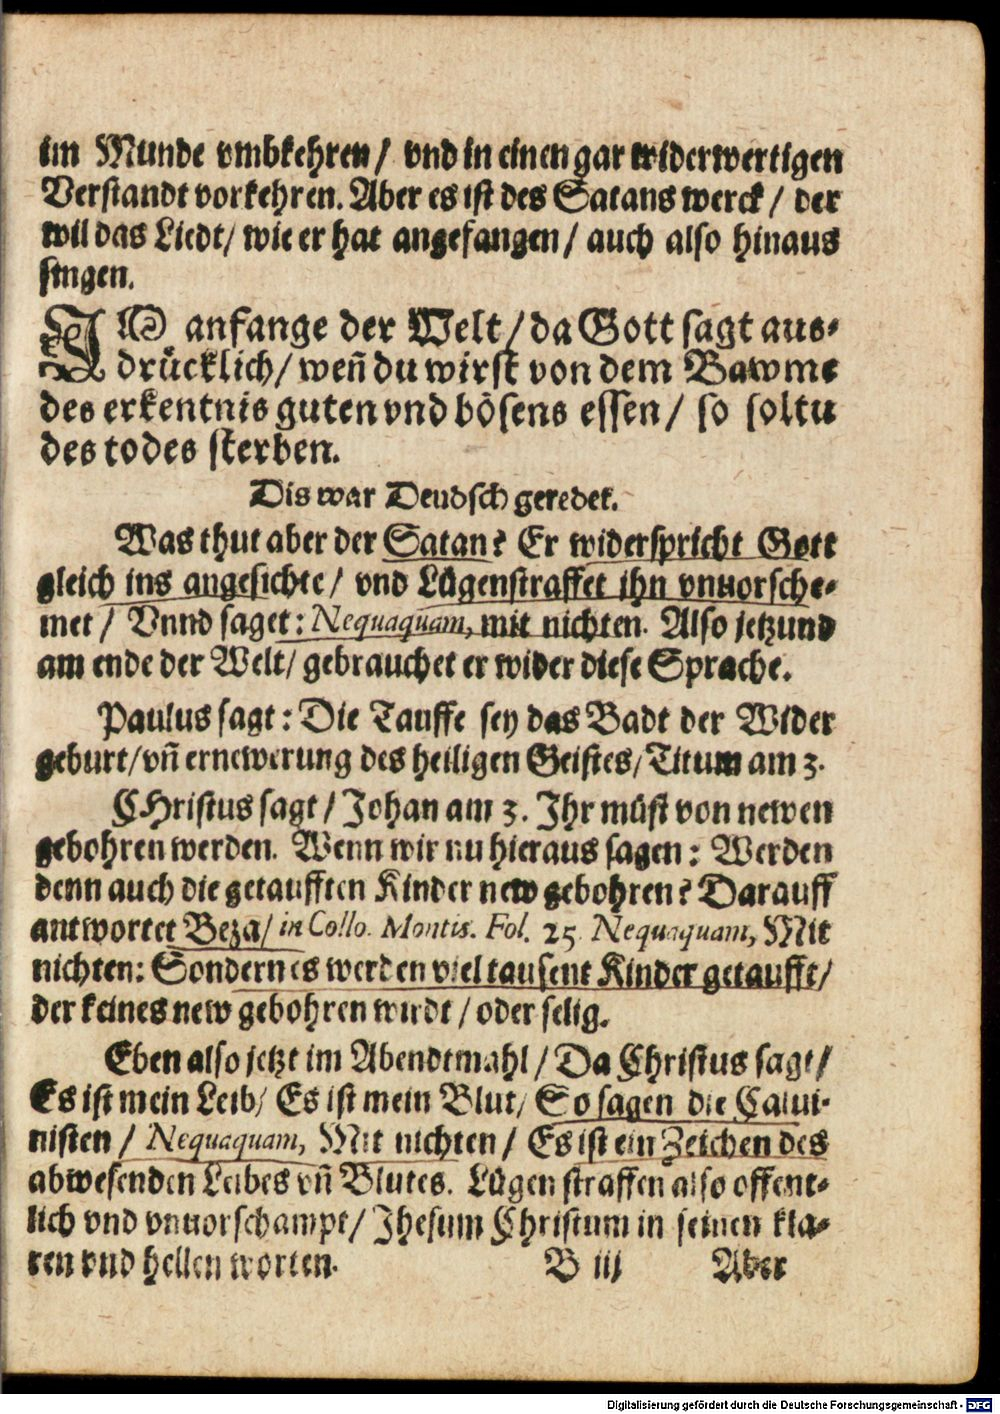 im Munde vmbkehren / vnd in einen gar widerwertigen
Verstandt vorkehren. Aber es ist des Satans werck / der
wil das Liedt / wie er hat angefangen / auch also hinaus
singen.
IM anfange der Welt / da Gott sagt aus-
drücklich / weñ du wirst von dem Bawme
des erkentnis guten vnd bösens essen / so soltu
des todes sterben.
Dis war Deudsch geredet.
Was thut aber der Satan? Er widerspricht Gott
gleich ins angesichte / vnd Lügenstraffet ihn vnuorsche-
met / Vnnd saget: Nequaquam, mit nichten. Also jetzund
am ende der Welt / gebrauchet er wider diese Sprache.
Paulus sagt: Die Tauffe sey das Badt der Wider
geburt / vñ ernewerung des heiligen Geistes / Titum am 3.
CHristus sagt / Johan am 3. Ihr müst von newen
gebohren werden. Wenn wir nu hieraus sagen: Werden
denn auch die getaufften Kinder new gebohren? Darauff
antwortet Beza / in Collo. Montis. Fol. 25. Nequaquam, Mit
nichten: Sondern es werden viel tausent Kinder getaufft /
der keines new gebohren wirdt / oder selig.
Eben also jetzt im Abendtmahl / Da Christus sagt /
Es ist mein Leib / Es ist mein Blut / So sagen die Calui-
nisten / Nequaquam, Mit nichten / Es ist ein Zeichen des
abwesenden Leibes vñ Blutes. Lügen straffen also offent-
lich vnd vnuorschampt / Jhesum Christum in seinen kla-
ren vnd hellen worten.
B iij Aber
Digitalisierung gefördert durch die Deutsche Forschungsgemeinschaft - DFG